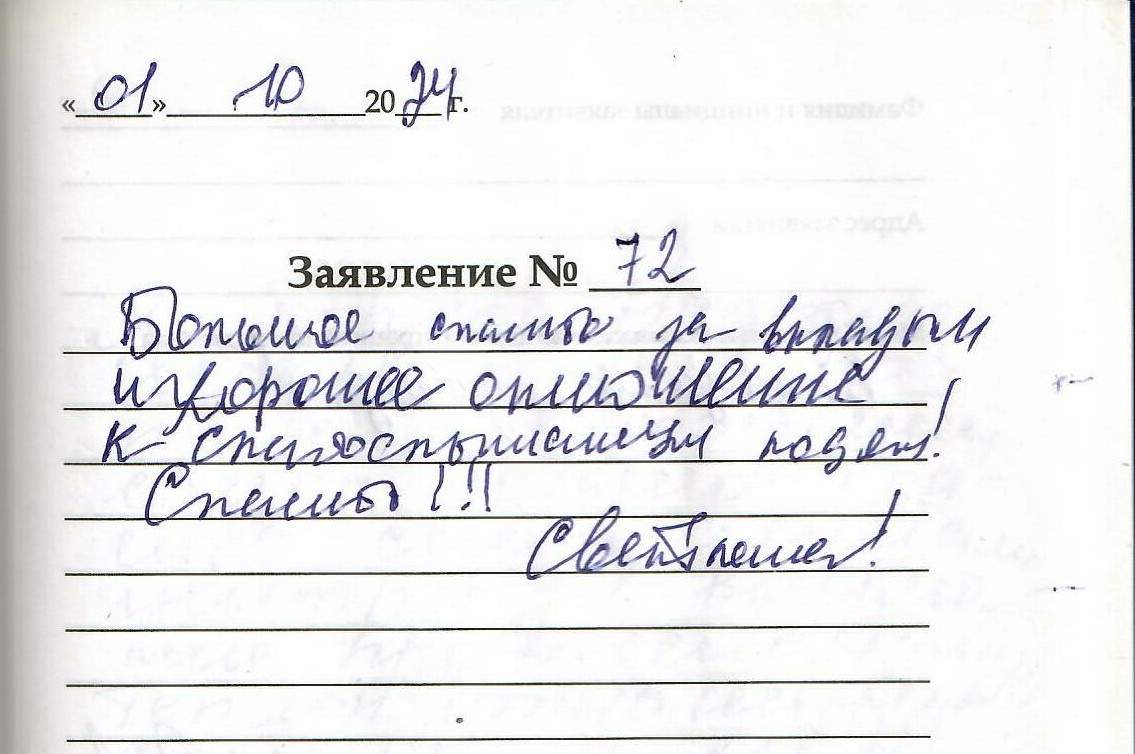 «01» 10 2024 г.
Заявление № 72
Большое спасибо за
и хорошее отношение
к людям!
Спасибо!!!
Светлана!